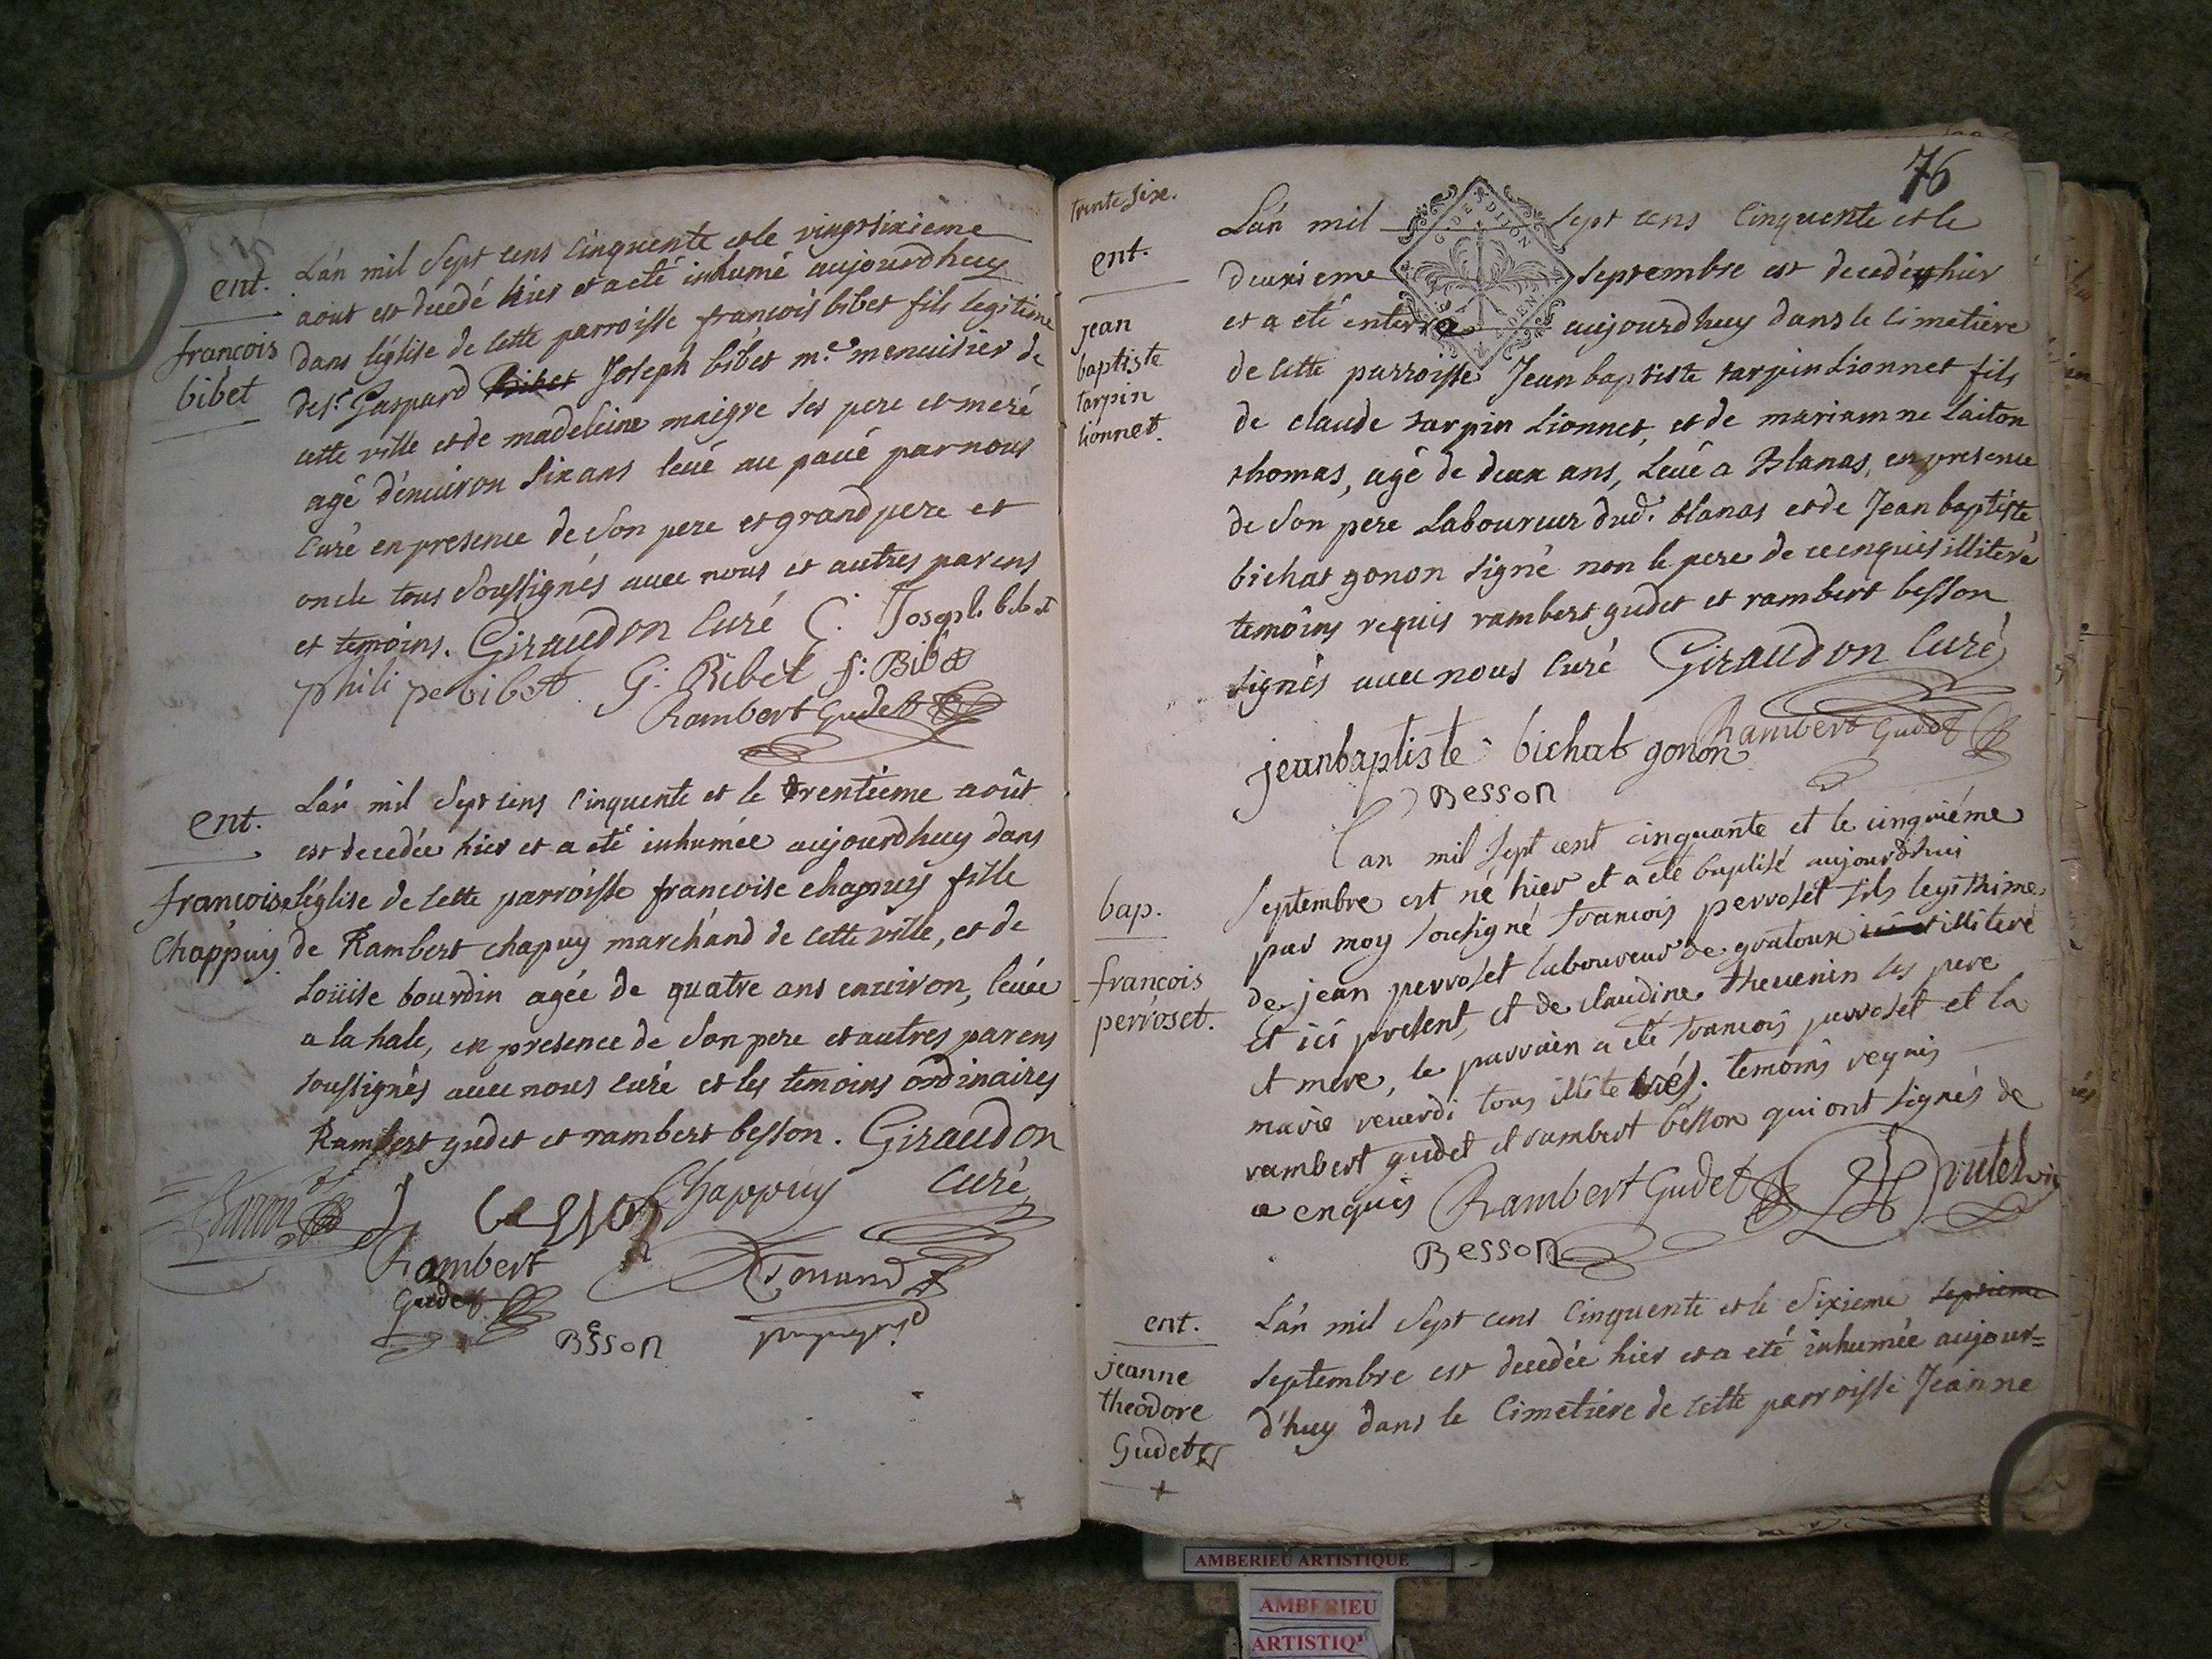 ent.
françois
bibet
L'an mil Sept cens Cinquente et le vingtsixieme
aout est decedé hier et a eté inhumé aujourdhuy
dans l'église de cette parroisse françois bibet fils legitime
de sr. Gaspard Bibet Joseph bibet me. menuisier de
cette ville et de madeleine maigre ses pere et mere
agé d'environ six ans levé au pavé par nous
Curé en presence de son pere et grand pere et
oncle tous Soussignés avec nous et autres parens
et temoins. Giraudon Curé C. Joseph bibet
philipe bibet G. Bibet f. Bibet
Rambert Gudet
ent.
francoise
Chappuy
L'an mil Sept cens Cinquente et le trentième août
est decedée hier et a eté inhumée aujourdhuy dans
l'église de cette parroisse francoise chapuy fille
de Rambert chapuy marchánd de cette ville, et de
Loüise bourdin agée de quatre ans environ, levée
a la hale, en presence de Son pere et autres parens
soussignés avec nous curé et les temoins ordinaires
Rambert gudet et rambert besson. Giraudon
Curé
Chappuy
Rambert
Gudet
Besson
trente sixe.
76
ent.
jean
baptiste
tarpin
lionnet.
L'an mil Sept cens Cinquente et le
deuxieme Septembre est decedé hier
et a eté enterré aujourdhuy dans le Cimetiere
de cette parroisse Jean baptiste tarpin Lionnet fils
de claude tarpin Lionnet, et de mariamne Laiton
thomas, agé de deux ans, Levé a Blanas, en presence
de Son pere Laboureur dud. blanas et de Jean baptiste
bichat gonon signé non le pere de ce enquis illiteré
temoins requis rambert gudet et rambert besson
signés avec nous Curé Giraudon Curé
Rambert Gudet
jeanbaptiste bichat gonon
Besson
bap.
françois
perroset.
l'an mil sept cent cinquante et le cinquiéme
Septembre est né hier et a eté baptisé aujourdhui
par moy sousigné francois perroset fils legithime
de jean perroset laboureur de gratoux illiteré
et ici present, et de claudine thevenin ses pere
et mere, le parrain a eté francois perroset et la
marie reverdi tous illiterés. temoins requis
rambert gudet et rambert besson qui ont signés de
ce enquis Rambert Gudet
Besson
ent.
jeanne
theodore
Gudet
L'an mil Sept cens Cinquente et le Sixieme septieme
Septembre est decedée hier et a eté inhumée aujour=
d'huy dans le Cimetiere de cette parroisse Jeanne
AMBERIEU ARTISTIQUE
AMBERIEU
ARTISTIQ